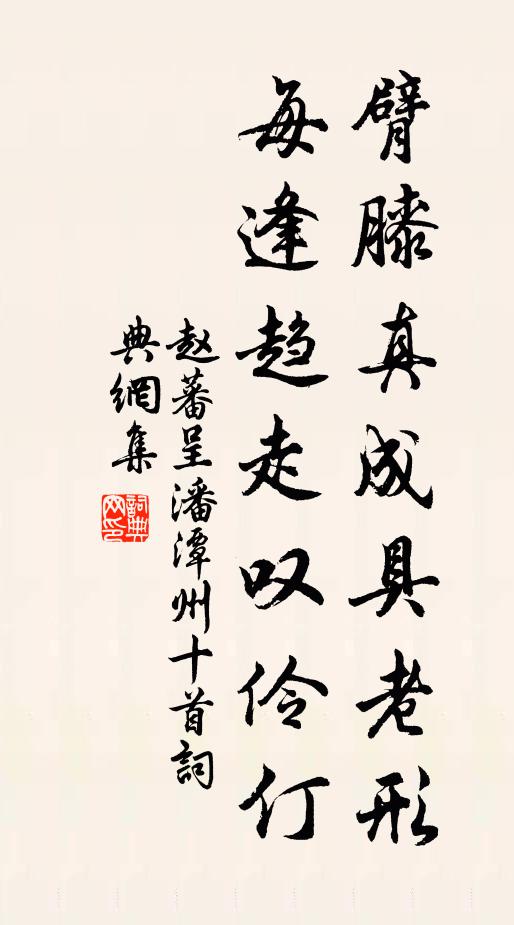 臂膝真成具老形
每逢趋走叹伶仃
赵蕃呈潘潭州十首詞
典網集
詞典网印